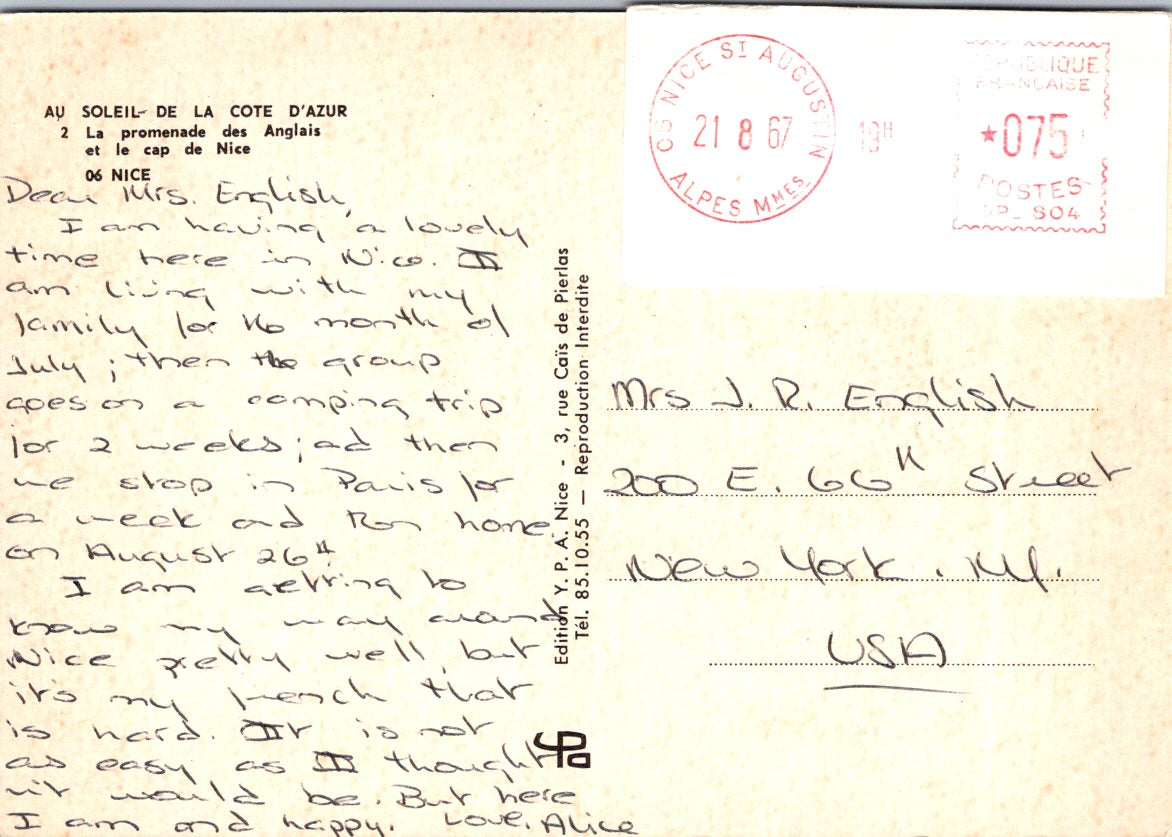 AU SOLEIL DE LA COTE D'AZUR
2 La promenade des Anglais
et le cap de Nice
06 NICE
Dear Mrs. English,
I am having a lovely
time here in Nice. I
am living with my
family for the month of
July ; then the group
goes on a camping trip
for 2 weeks ; ad then
we stop in Paris for
a week and then home
on August 26th
I am getting to
know my way around
Nice pretty well, but
it's my french that
is hard. It is not
as easy as I thought
it would be. But here
I am and happy. Love, Alice
Edition Y. P. A. Nice - 3, rue Caïs de Pierlas
Tél. 85.10.55 — Reproduction Interdite
ypa
06 NICE ST AUGUSTIN
21 8 67
ALPES MMES
19H
REPUBLIQUE
FRANCAISE
★075
POSTES
S04
Mrs J. R. English
200 E. 66th Street
New York, N.Y.
USA